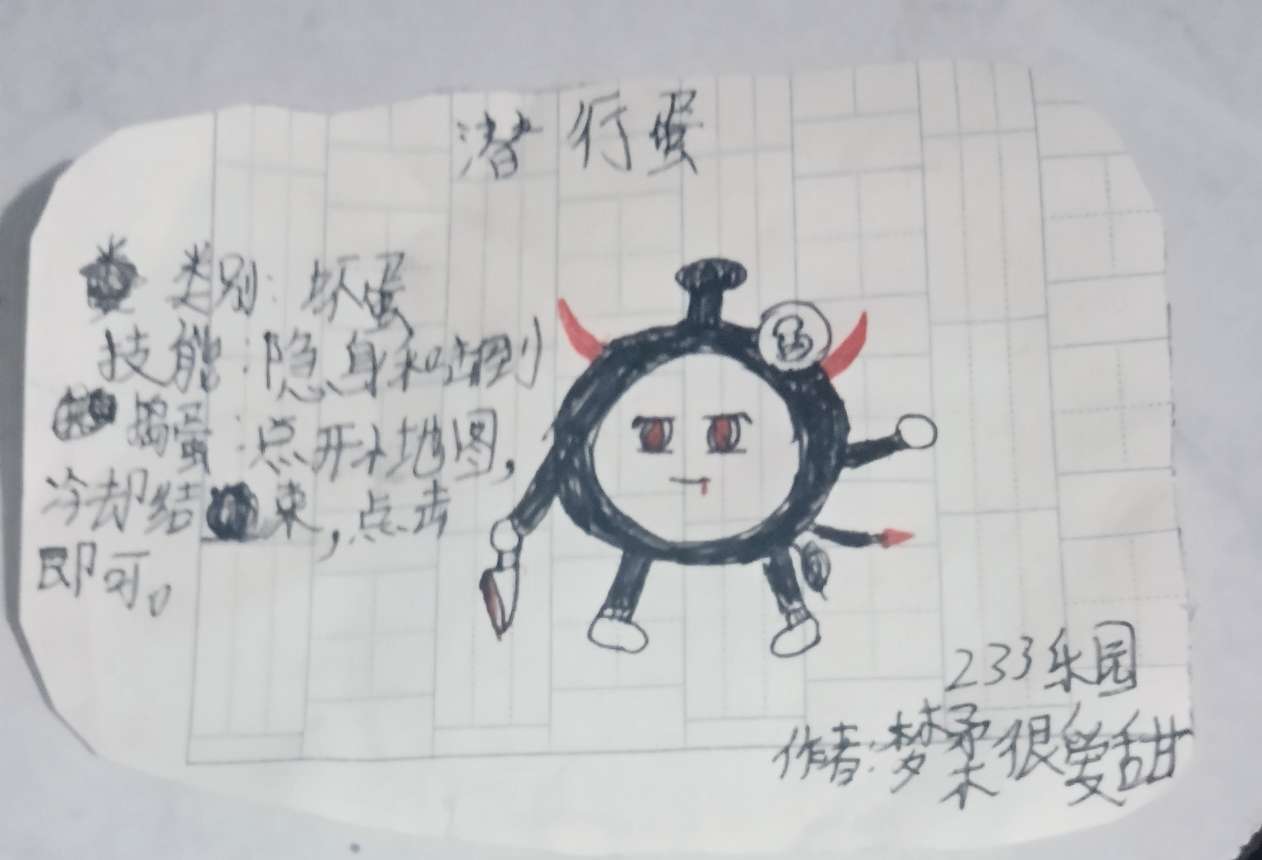 潜行蛋
类别：坏蛋
技能：隐身和捅刀
捣蛋：点开小地图，
冷却结束，点击
即可。
233乐园
作者：梦柔很爱甜